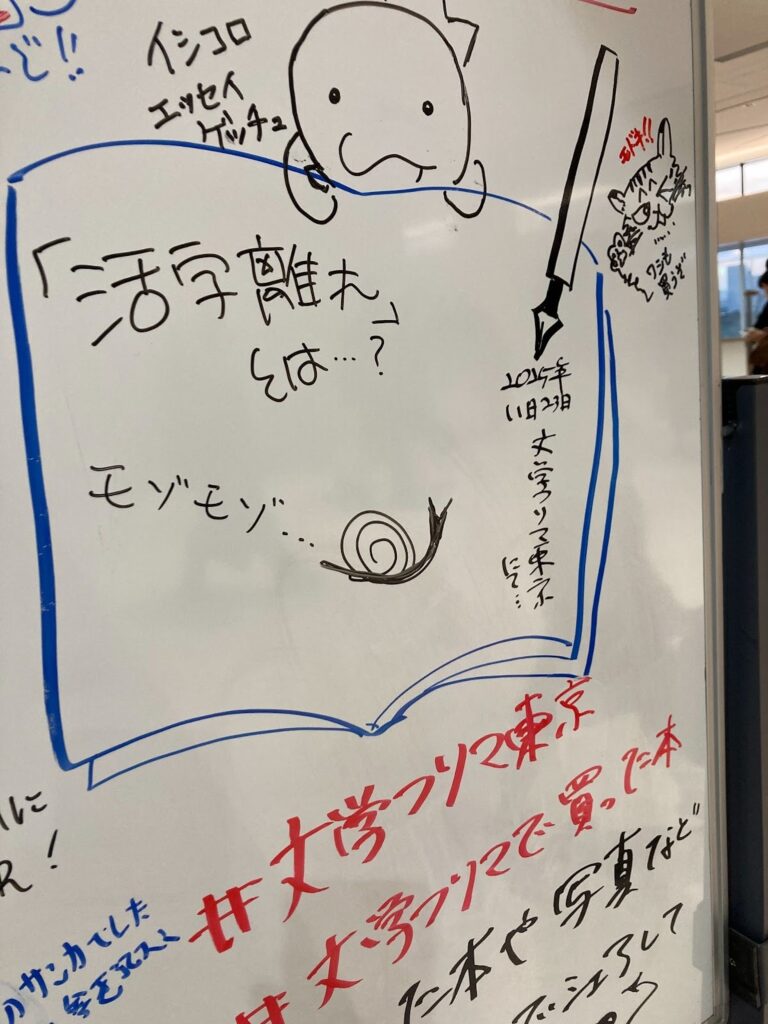 イシコロ
エッセイ
ゲッチュ
「活字離れ」
とは…?
モゾモゾ…
2025年
11日23日
文学フリマ東京
にて
ワシも
買うぞ
#文学フリマ東京
#文学フリマで買った本
た本や写真など
サンカでした